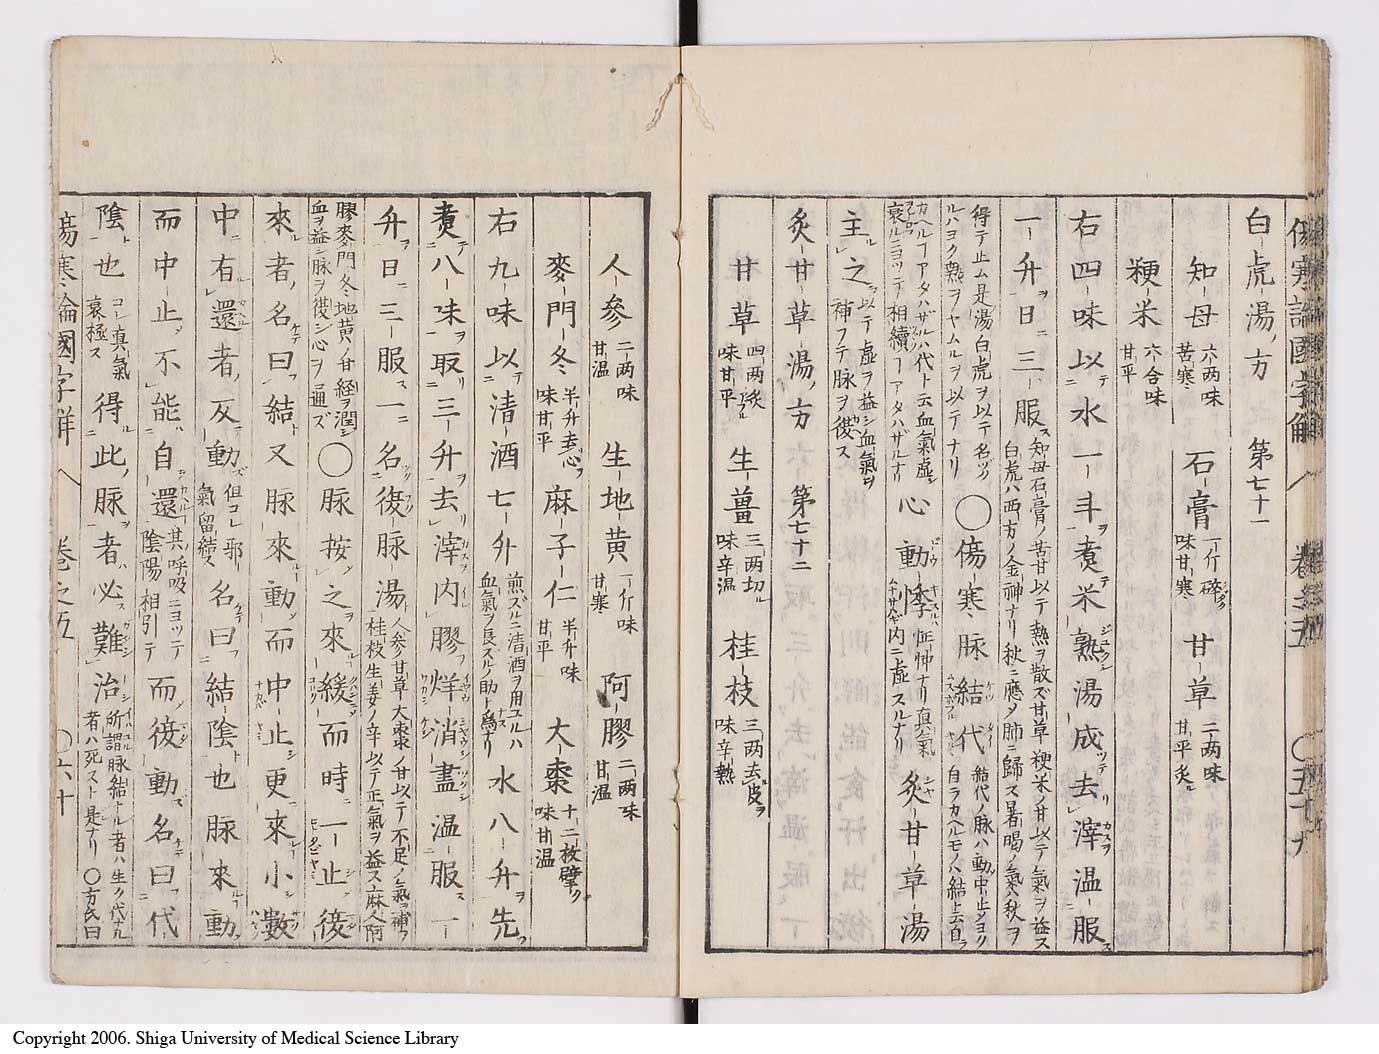 傷寒論國字解 八 卷之五 ○五十九
白虎湯ノ方 第七十一
知母 六兩味苦寒 石膏 一斤碎ク味甘寒 甘草 二兩味甘平炙ル
粳米 六合味甘平
右四味以テ水一斗ヲ煑テ米熟湯成去リ滓ヲ温服ス
一升ヲ日ニ三服ス 知母石膏ノ苦甘以テ熱ヲ散ズ甘草粳米ノ甘以テ氣ヲ益ス白虎ハ西方ノ金神ナリ秋ニ應ノ肺ニ歸ス暑暍ノ氣秋ヲ
得テ止ム是湯白虎ヲ以テ名ヅルハヨク熱ヲヤムルヲ以テナリ ○傷寒脉結代 結代ノ脉ハ動中止メヨク自ラカヘルモノハ結ト云自ラ
カヘルアタハザルハ代ト云血氣虛衰ルニヨツテ相續アタハザルナリ 心動悸 怔忡ナリ真氣内ニ虛スルナリ 炙甘草湯
主ル之ヲ 以テ虛ヲ益シ血氣ヲ補フテ脉ヲ復ス
炙甘草湯ノ方 第七十二
甘草 四兩炙ル味甘平 生薑 三兩切ル味辛温 桂枝 三兩去皮ヲ味辛熱
人參 二兩味甘温 生地黄 一斤味甘寒 阿膠 二兩味甘温
麥門冬 半升去心ヲ味甘平 麻子仁 半升味甘平 大棗 十二枚擘ク味甘温
右九味以テ清酒七升 煎ズルニ清酒ヲ用ユルハ血氣ヲ長ズルノ助ト為ナリ 水八升ヲ先ツ
煑テ八味ヲ取リ三升ヲ去リ滓ヲ内レ膠ヲ烊消盡温服ス一
升ヲ日ニ三服ス一ニ名ク復脉湯ト 人參甘草大棗ノ甘以テ不足ノ氣ヲ補フ桂枝生姜ノ辛以テ正氣ヲ益ス麻人阿
膠麥門冬地黄ノ甘経ヲ潤シ血ヲ益シ脉ヲ復シ心ヲ通ズ ○脉按之來緩而時ニ一止復
來ル者ノ名ケテ曰結ト又脉來動而中止更來小數
中ニ有還者ノ反テ動ズ 但コレ邪氣留結ス 名ケテ曰フ結陰也脉來動
而中止不能ハ自還 其ノ呼吸ニヨツテ陰陽相引テ 而復動ス名ケテ曰フ代
陰ト也 コレ真氣衰極ス 得此ノ脉ヲ者ハ必ス難治 所謂脉結ナル者ハ生ク代ナル者ハ死スト是ナリ ○方氏曰
傷寒論國字解 八 卷之五 ○六十
Copyright 2006. Shiga University of Medical Science Library